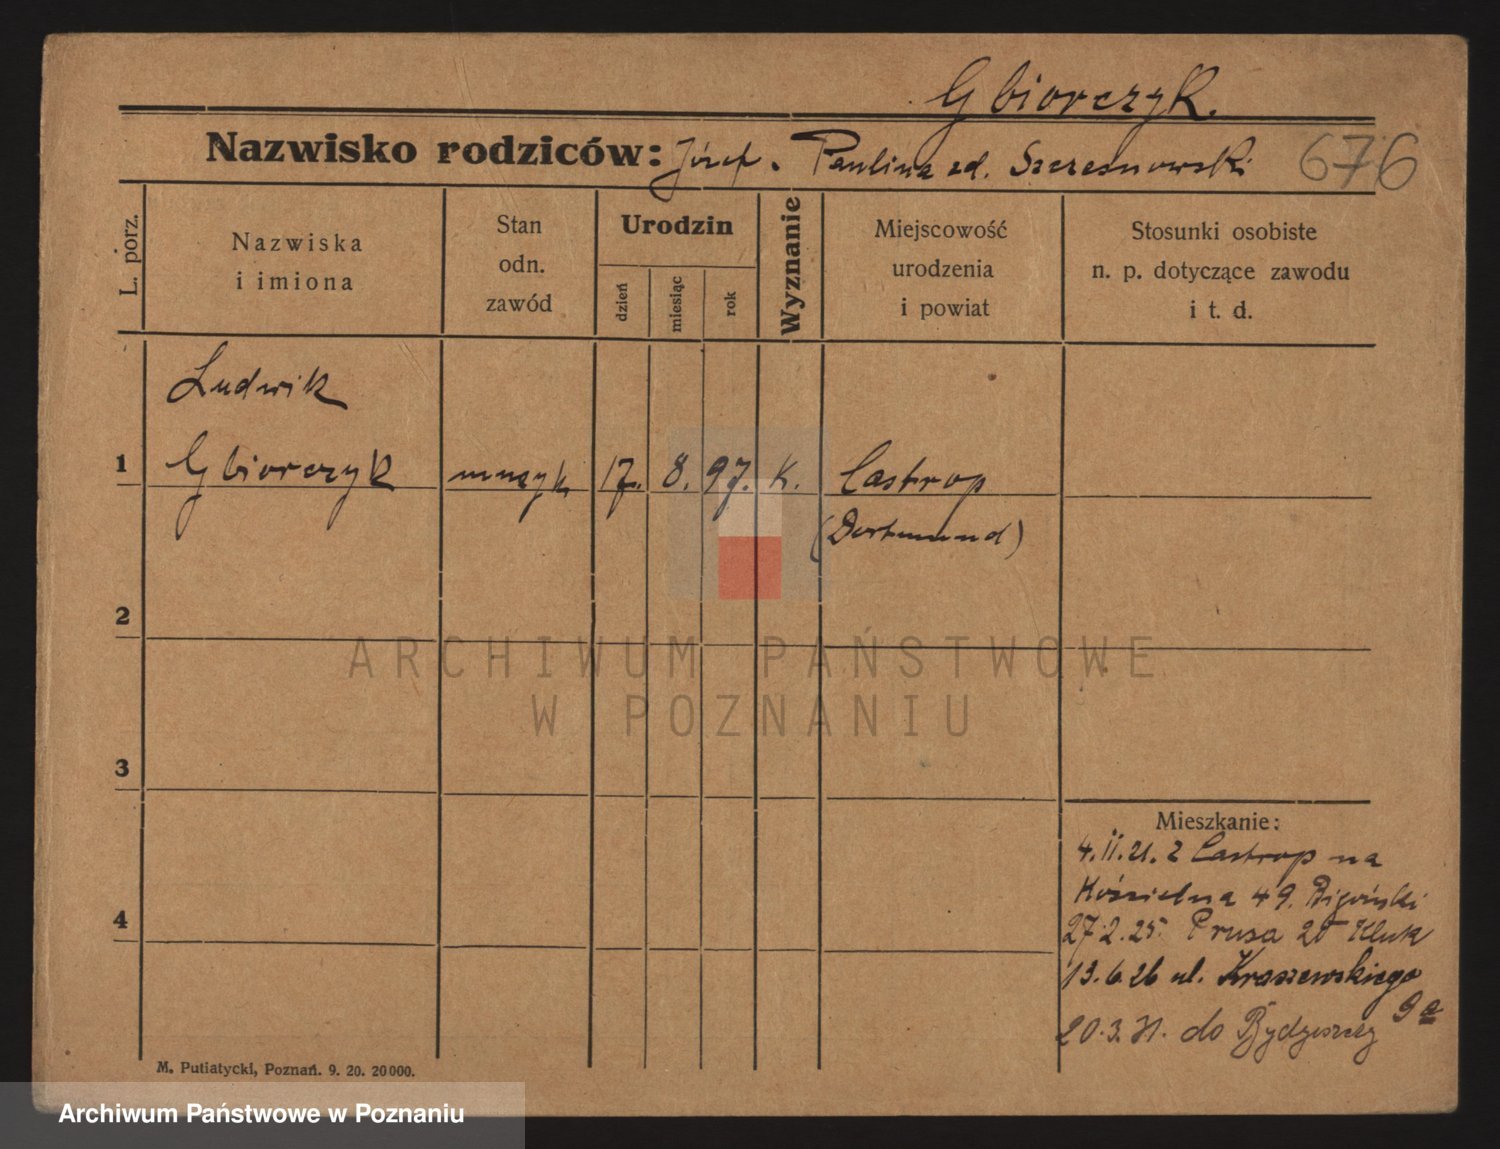 Gbiorczyk.
Nazwisko rodziców: Józef. Paulina zd. Szczesnowski 676
L. porz.
Nazwiska
i imiona
Stan
odn.
zawód
Urodzin
dzień
miesiąc
rok
Wyznanie
Miejscowość
urodzenia
i powiat
Stosunki osobiste
n. p. dotyczące zawodu
i t. d.
Ludwik
1 Gbiorczyk muzyk 17. 8. 97. K. Castrop
(Dortmund)
2
ARCHIWUM PAŃSTWOWE
W POZNANIU
3
Mieszkanie:
4.11.21. z Castrop na
4 Kościelna 49.
27.2.25. Prusa 20 Kluk
13.6.26 ul. Kraszewskiego
9a
20.3.31. do Bydgoszczy
M. Putiatycki, Poznań. 9. 20. 20000.
Archiwum Państwowe w Poznaniu